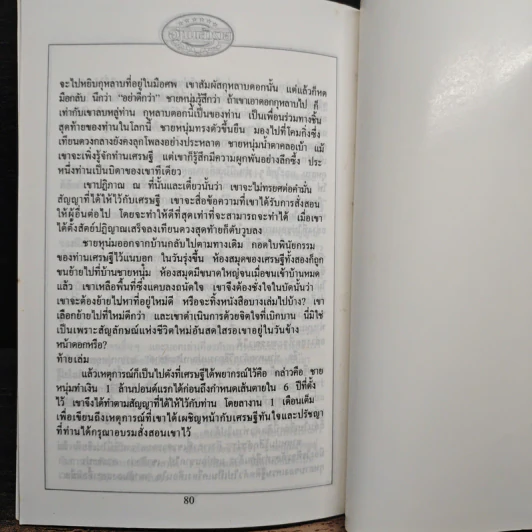 จะไปหยิบกุหลาบที่อยู่ในมือศพ เขาสัมผัสกุหลาบดอกนั้น แต่แล้วก็หด
มือกลับ นึกว่า “อย่าดีกว่า” ชายหนุ่มรู้สึกว่า ถ้าเขาเอาดอกกุหลาบไป ก็
เท่ากับเขาลบหลู่ท่าน กุหลาบดอกนี้เป็นของท่าน เป็นเพื่อนร่วมทางชิ้น
สุดท้ายของท่านในโลกนี้ ชายหนุ่มทรงตัวขึ้นยืน มองไปที่โคมกิ่งซึ่ง
เทียนดวงกลางยังคงลุกโพลงอย่างประหลาด ชายหนุ่มน้ำตาคลอเบ้า แม้
เขาจะเพิ่งรู้จักท่านเศรษฐี แต่เขาก็รู้สึกมีความผูกพันอย่างลึกซึ้ง ประ
หนึ่งท่านเป็นบิดาของเขาทีเดียว
เขาปฏิภาณ ณ ที่นั้นและเดี๋ยวนั้นว่า เขาจะไม่ทรยศต่อคำมั่น
สัญญาที่ได้ให้ไว้กับเศรษฐี เขาจะสื่อข้อความที่เขาได้รับการสั่งสอน
ให้ผู้อื่นต่อไป โดยจะทำให้ดีที่สุดเท่าที่จะสามารถจะทำได้ เมื่อเขา
ได้ตั้งสัตย์ปฏิญาณเสร็จลงเทียนดวงสุดท้ายก็ดับวูบลง
ชายหนุ่มออกจากบ้านกลับไปตามทางเดิม กอดใบพินัยกรรม
ของท่านเศรษฐีไว้แนบอก ในวันรุ่งขึ้น ห้องสมุดของเศรษฐีทั้งสองก็ถูก
ขนย้ายไปที่บ้านชายหนุ่ม ห้องสมุดมีขนาดใหญ่จนเมื่อขนเข้าบ้านหมด
แล้ว เขาเหลือพื้นที่ซึ่งแคบลงถนัดใจ เขาจึงต้องชั่งใจในบัดนั้นว่า
เขาจะต้องย้ายไปหาที่อยู่ใหม่ดี หรือจะทิ้งหนังสือบางเล่มไปบ้าง? เขา
เลือกย้ายไปที่ใหม่ดีกว่า และเขาดำเนินการด้วยจิตใจที่เบิกบาน นี่มิใช่
เป็นเพราะสัญลักษณ์แห่งชีวิตใหม่อันสดใสรอเขาอยู่ในวันข้าง
หน้าดอกหรือ?
ท้ายเล่ม
แล้วเหตุการณ์ก็เป็นไปดังที่เศรษฐีได้พยากรณ์ไว้คือ กล่าวคือ ชาย
หนุ่มทำเงิน 1 ล้านปอนด์แรกได้ก่อนถึงกำหนดเส้นตายใน 6 ปีที่ตั้ง
ไว้ เขาจึงได้ทำตามสัญญาที่ได้ให้ไว้กับท่าน โดยลางาน 1 เดือนเต็ม
เพื่อเขียนถึงเหตุการณ์ที่เขาได้เผชิญหน้ากับเศรษฐีทันใจและปรัชญา
ที่ท่านได้กรุณาอบรมสั่งสอนเขาไว้
80